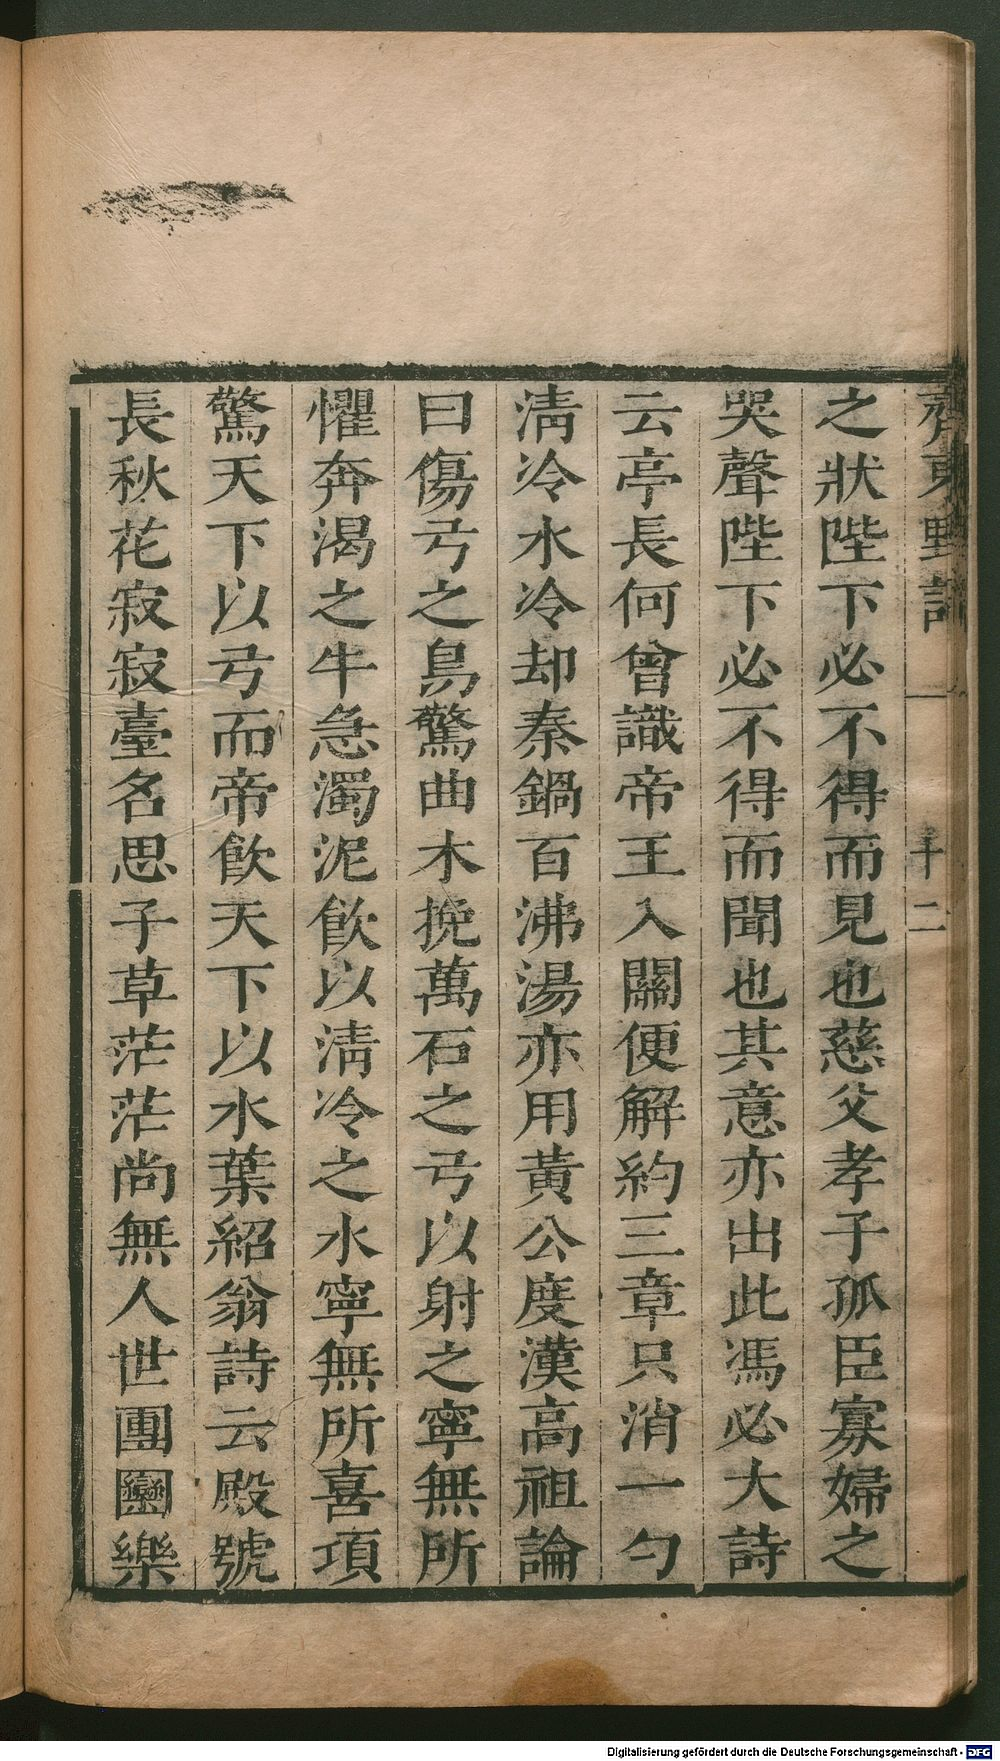 齊東野語 一 十二
之狀陛下必不得而見也慈父孝子孤臣寡婦之
哭聲陛下必不得而聞也其意亦出此馮必大詩
云亭長何曾識帝王入關便解約三章只消一勺
淸冷水冷却秦鍋百沸湯亦用黃公度漢高祖論
曰傷弓之鳥驚曲木挽萬石之弓以射之寧無所
懼奔渴之牛急濁泥飮以淸冷之水寧無所喜項
驚天下以弓而帝飮天下以水葉紹翁詩云殿號
長秋花寂寂臺名思子草茫茫尚無人世團圞樂
Digitalisierung gefördert durch die Deutsche Forschungsgemeinschaft - DFG